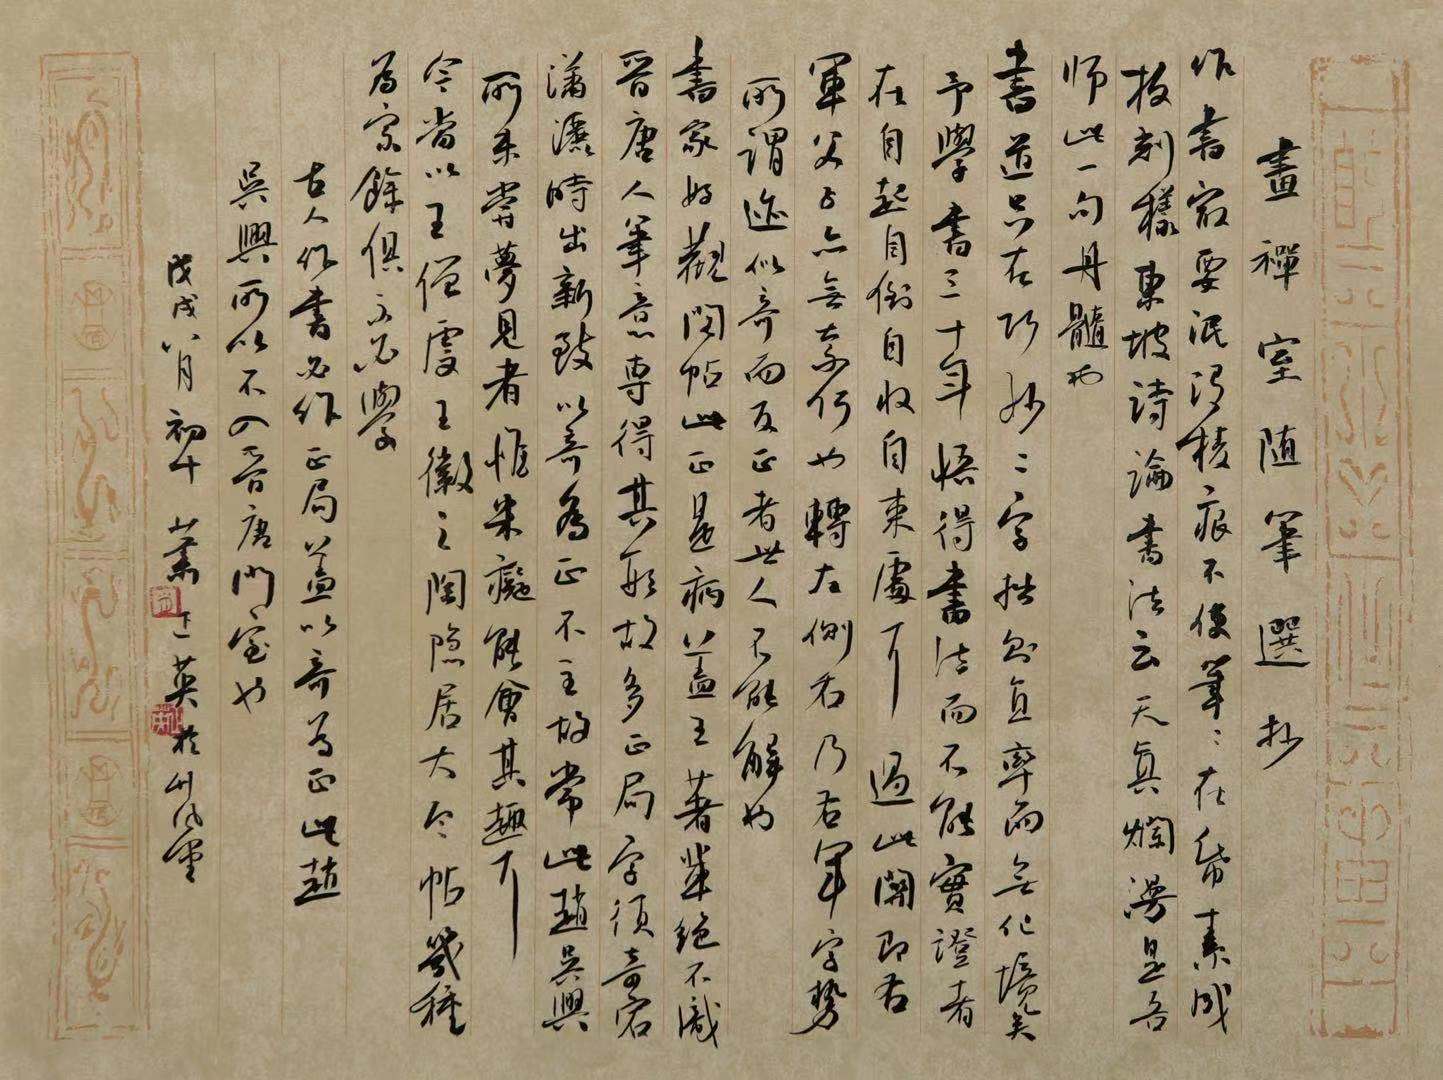 畫禪室随筆選抄
作書最要泯没棱痕不使筆〻在紙素成
板刻樣東坡詩論書法云天真爛漫是吾
师此一句丹髓也
書道只在巧妙二字拙則直率而無化境矣
予學書三十年悟得書法而不能實證者
在自起自倒自收自束處耳過此關即右
軍父子亦無奈何也轉左側右乃右軍字勢
所謂迹似奇而反正者世人不能解也
書家好觀閣帖此正是病蓋王著輩絶不識
晉唐人筆意専得其形故多正局字須奇宕
潇灑時出新致以奇為正不主故常此趙吳興
所未嘗夢見者惟米癡能會其趣耳
今當以王僧虔王徽之陶隐居大令帖幾種
為宗餘俱不必學
古人作書必不作正局蓋以奇為正此趙
吳興所以不入晉唐門室也
戊戌八月初十 英於